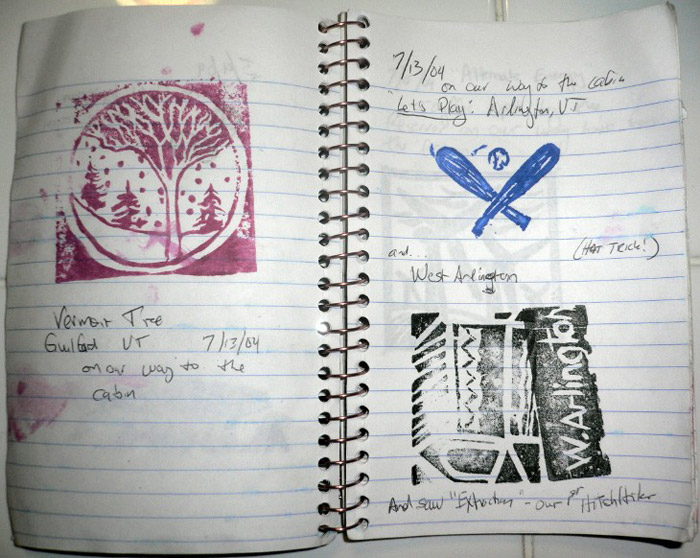 Vermont Tree
Guilford VT 7/13/04
on our way to the
cabin
7/13/04
on our way to the cabin
"Let's Play": Arlington, VT
and...
(HAT TRICK!)
West Arlington
W. Arlington
And saw "Extraction" - our 1st Hitchhiker